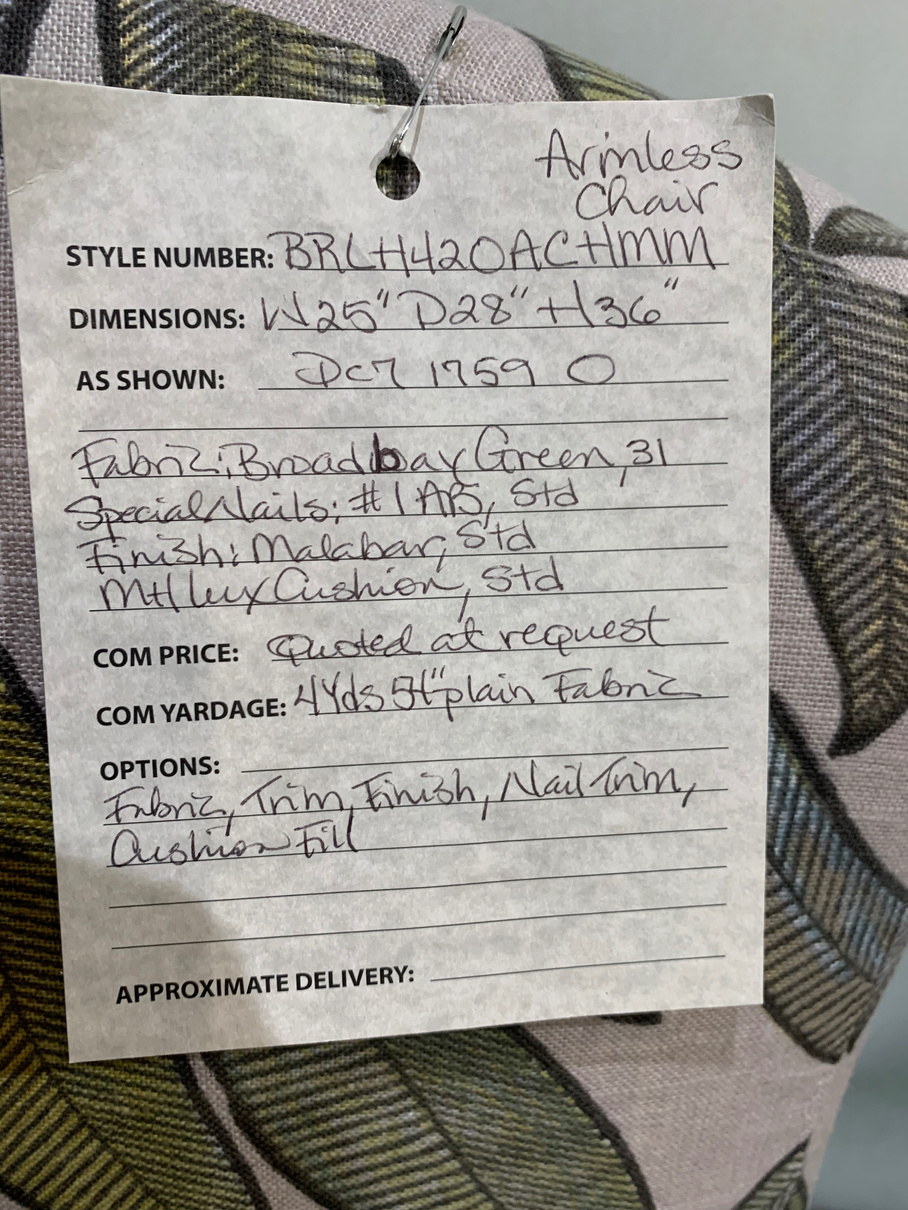 Armless
Chair
STYLE NUMBER: BRLH420ACHMM
DIMENSIONS: W25" D28" H36"
AS SHOWN: Dc7 1759 O
Fabric; Broadbay Green, 31
Special Nails; #1 AB, Std
Finish: Malabar, Std
Mtl lux Cushion, Std
COM PRICE: Quoted at request
COM YARDAGE: 4 Yds 54" plain Fabric
OPTIONS:
Fabric, Trim, Finish, Nail Trim,
Cushion Fill
APPROXIMATE DELIVERY: